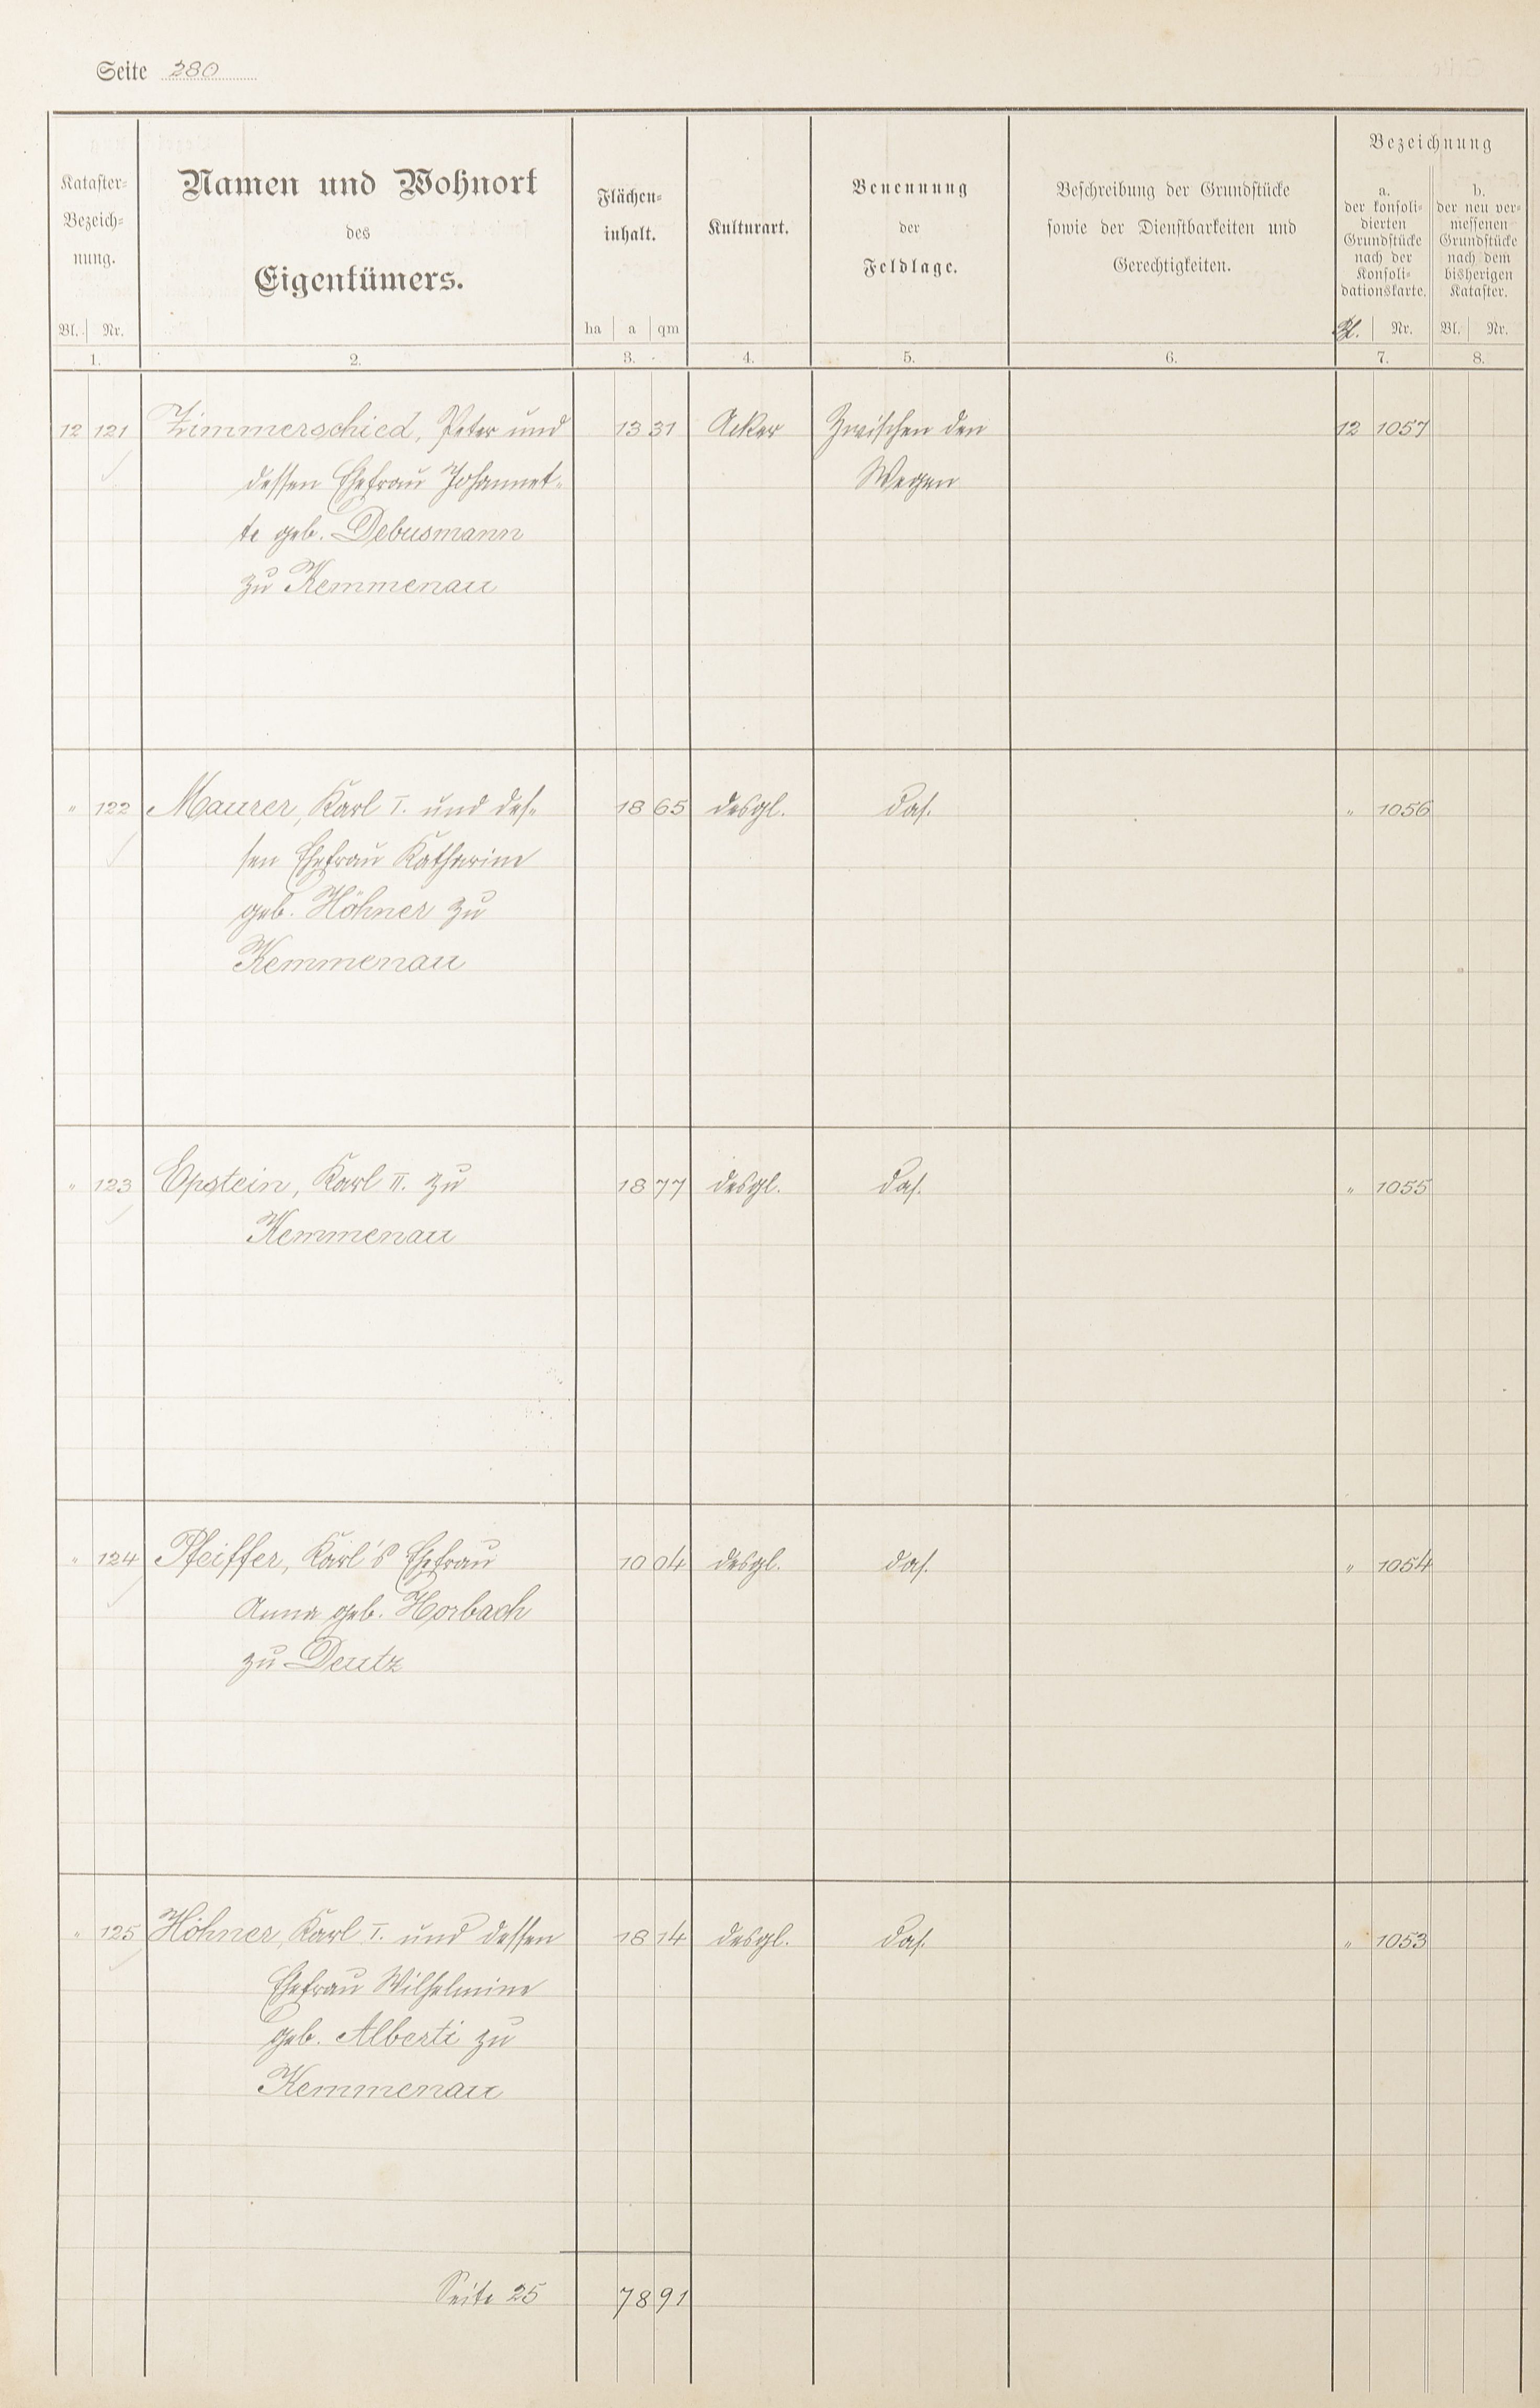 Seite 280
Kataster-
Bezeich-
nung.
Bl. Nr.
1.
Namen und Wohnort
des
Eigentümers.
2.
Flächen-
inhalt.
ha a qm
3.
Kulturart.
4.
Benennung
der
Feldlage.
5.
Beschreibung der Grundstücke
sowie der Dienstbarkeiten und
Gerechtigkeiten.
6.
Bezeichnung
a.
der konsoli-
dierten
Grundstücke
nach der
Konsoli-
dationskarte.
Bl. Nr.
7.
b.
der neu ver-
messenen
Grundstücke
nach dem
bisherigen
Kataster.
Bl. Nr.
8.
12 121 Zimmerschied, Peter und 13 31 Acker Zwischen den 12 1057
dessen Ehefrau Johannet- Wegen
te geb. Debusmann
zu Kemmenau
" 122 Maurer, Karl I. und des- 18 65 desgl. das. " 1056
sen Ehefrau Katharine
geb. Höhner zu
Kemmenau
" 123 Epstein, Karl II. zu 18 77 desgl. das. " 1055
Kemmenau
" 124 Pfeiffer, Karl's Ehefrau 10 04 desgl. das. " 1054
Anna geb. Horbach
zu Deutz
" 125 Höhner, Karl I. und dessen 18 14 desgl. das. " 1053
Ehefrau Wilhelmine
geb. Alberti zu
Kemmenau
Seite 25 78 91